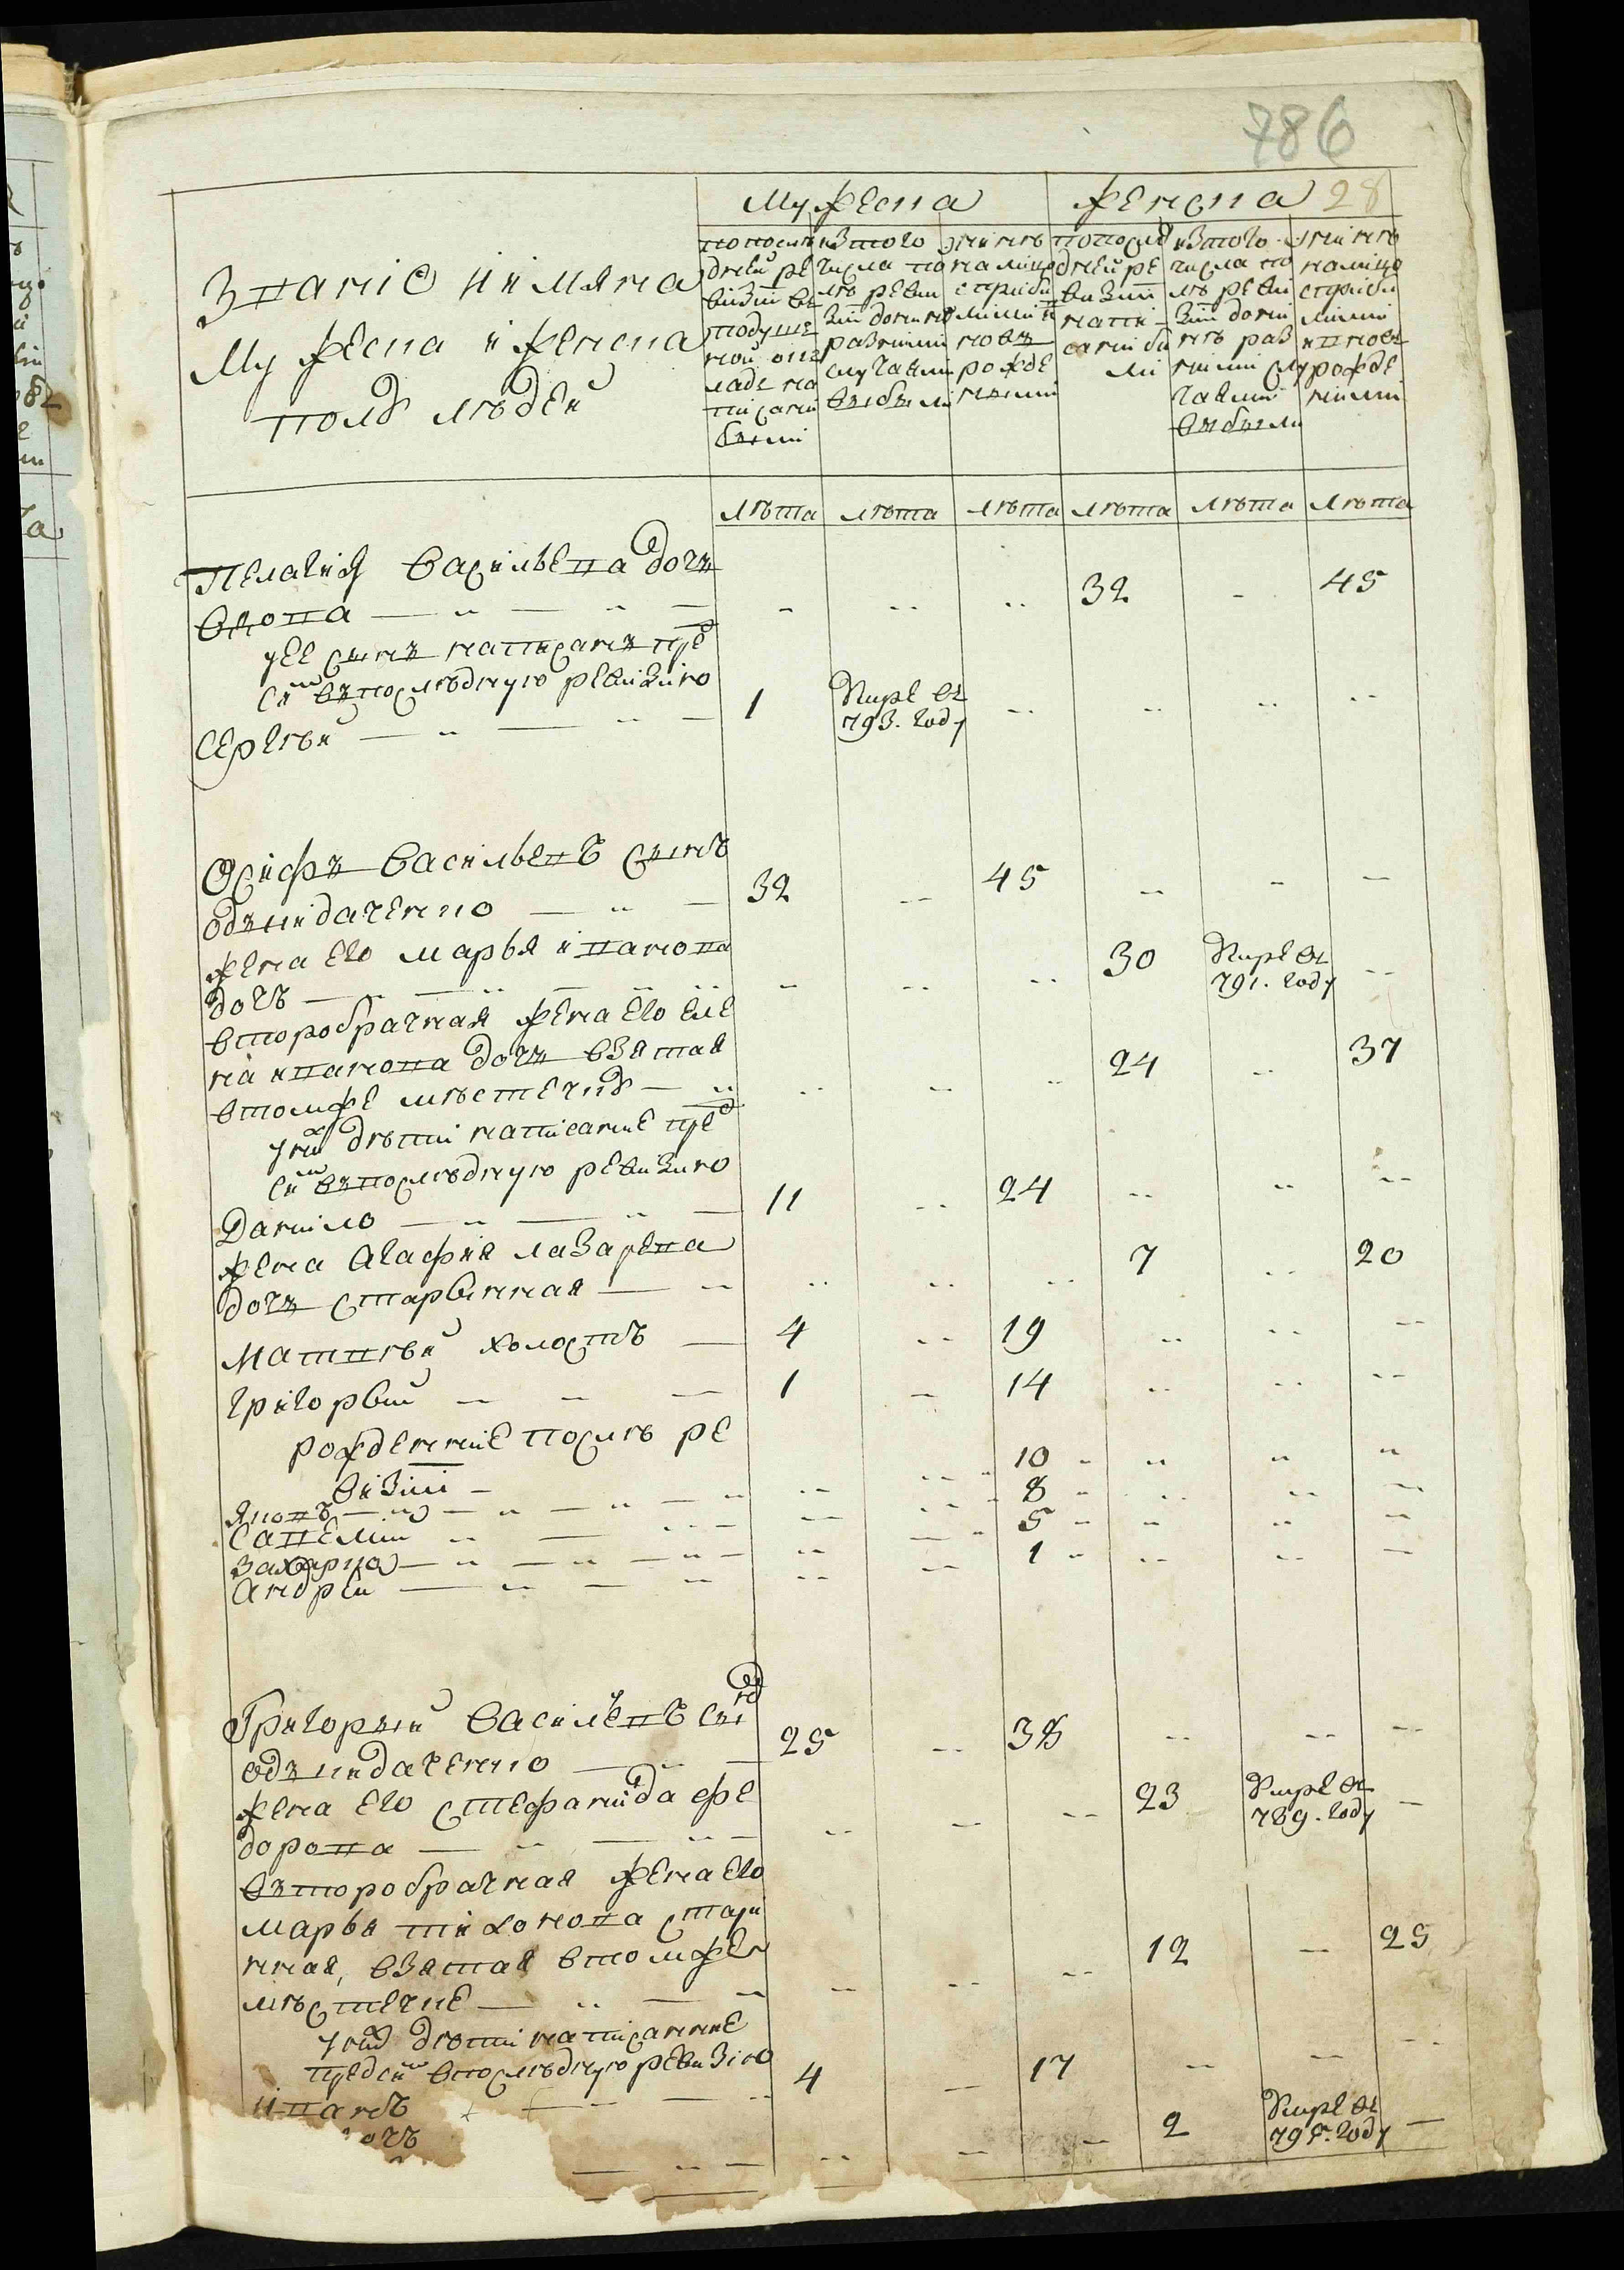 786
Мужеска
женска 28
Званiе и имяна
Мужеска и женска
полу людей
по послѣдней ревизiи въ подушной окладе написаны были
изъ того числа после ревизiи до нне разными случаями выбыли
нынѣ на лицо с прибылыми и вновь рожденными
по последней ревизiи написаны были
изъ того числа после ревизiи до нынѣ разными случаями выбыли
нынѣ на лицо с прибылыми и вновь рожденними
лѣта лѣта лѣта лѣта лѣта лѣта
Пелагия Васильева дочь
вдова 32 45
у ее сынъ написанъ пред
сим въ последную ревизию
Сергѣй 1 Умре въ 793. году
Осифъ Васильевъ сынъ
одъкидаченко 32 45
жена его Марья иванова
дочъ 30 Умре въ 791. году
второбрачная жена его еле
на иванова дочь взятая
в томже мѣстечку 24 37
у них дѣти написание пред
сим въ последную ревизию
Данило 11 24
жена Агафия лазарева
дочь старвинная 7 20
Матвѣй холостъ 4 19
Григорей 1 14
рожденние послѣ ре
визiи
Яковъ 10
Савелий 8
Захарко 5
Андрей 1
Григорый Василевъ сынъ
одъкидаченко 25 38
жена его стефанида фе
дорова 23 Умре въ 789. году
въторобрачная жена его
марья тихонова стари
нная, взятая в томже
мѣстечке 12 25
у них дѣти написанние
пред сим в последную ревизiю
Иванъ 4 17
2 Умре въ 795. году